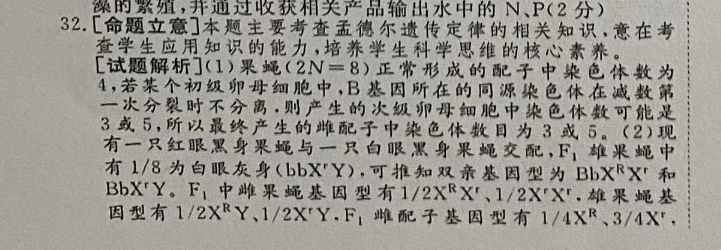 藻的繁殖,并通过收获相关产品输出水中的 N、P(2 分)
32.[命题立意]本题主要考查孟德尔遗传定律的相关知识,意在考
查学生应用知识的能力,培养学生科学思维的核心素养。
[试题解析](1)果蝇(2N=8)正常形成的配子中染色体数为
4,若某个初级卵母细胞中,B 基因所在的同源染色体在减数第
一次分裂时不分离,则产生的次级卵母细胞中染色体数可能是
3 或 5,所以最终产生的雌配子中染色体数目为 3 或 5。(2)现
有一只红眼黑身果蝇与一只白眼黑身果蝇交配,F₁ 雄果蝇中
有 1/8 为白眼灰身(bbXʳY),可推知双亲基因型为 BbXᴿXʳ 和
BbXʳY。F₁ 中雌果蝇基因型有1/2XᴿXʳ、1/2XʳXʳ,雄果蝇基
因型有 1/2XᴿY、1/2XʳY,F₁ 雌配子基因型有 1/4Xᴿ、3/4Xʳ,